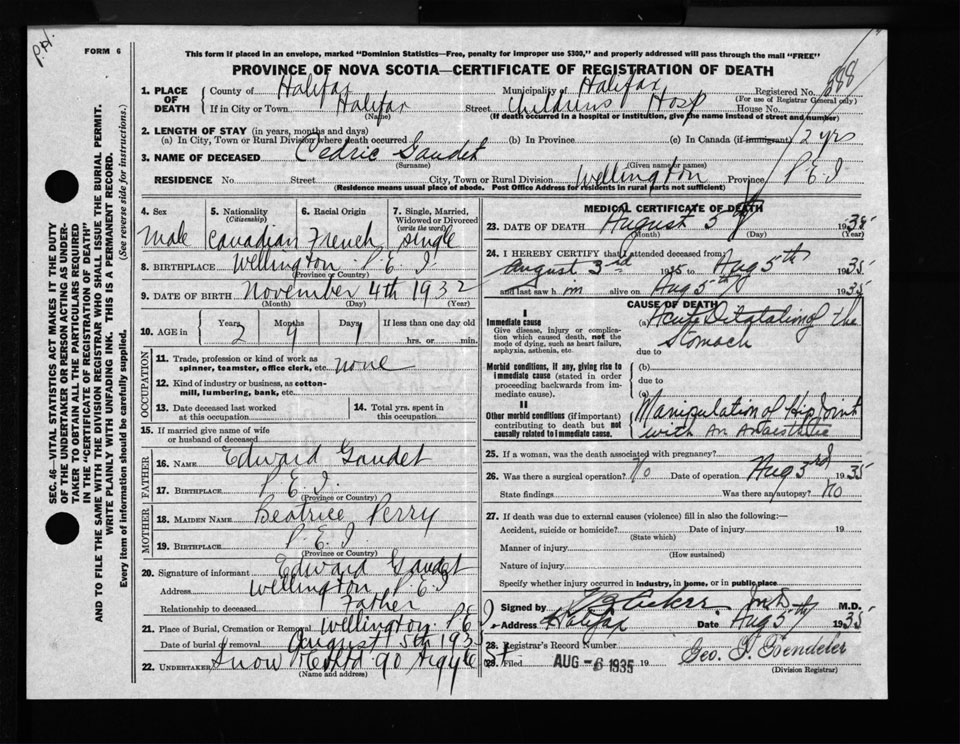 P.H.
FORM 6
This form if placed in an envelope, marked "Dominion Statistics—Free, penalty for improper use $300," and properly addressed will pass through the mail "FREE"
PROVINCE OF NOVA SCOTIA—CERTIFICATE OF REGISTRATION OF DEATH
SEC. 46—VITAL STATISTICS ACT MAKES IT THE DUTY
OF THE UNDERTAKER OR PERSON ACTING AS UNDER-
TAKER TO OBTAIN ALL THE PARTICULARS REQUIRED
IN THE "CERTIFICATE OF REGISTRATION OF DEATH"
AND TO FILE THE SAME WITH THE DIVISION REGISTRAR WHO SHALL ISSUE THE BURIAL PERMIT.
WRITE PLAINLY WITH UNFADING INK. THIS IS A PERMANENT RECORD.
Every item of information should be carefully supplied. (See reverse side for instructions.)
1. PLACE OF DEATH County of Halifax Municipality of Halifax Registered No. 588
(For use of Registrar General only)
If in City or Town Halifax Street Childrens Hosp House No.
(Name) (If death occurred in a hospital or institution, give the name instead of street and number)
2. LENGTH OF STAY (in years, months and days)
(a) In City, Town or Rural Division where death occurred (b) In Province (c) In Canada (if immigrant) 2 yrs
3. NAME OF DECEASED Cedric Gaudet
(Surname) (Given name or names)
RESIDENCE No. Street City, Town or Rural Division Wellington Province P.E.I
(Residence means usual place of abode. Post Office Address for residents in rural parts not sufficient)
4. Sex Male
5. Nationality (Citizenship) Canadian
6. Racial Origin French
7. Single, Married, Widowed or Divorced (write the word) Single
8. BIRTHPLACE Wellington P.E.I.
(Province or Country)
9. DATE OF BIRTH November 4th 1932
(Month) (Day) (Year)
10. AGE in Years 2 Months 9 Days 1 If less than one day old hrs. or min.
OCCUPATION
11. Trade, profession or kind of work as spinner, teamster, office clerk, etc. none
12. Kind of industry or business, as cotton-mill, lumbering, bank, etc.
13. Date deceased last worked at this occupation
14. Total yrs. spent in this occupation
15. If married give name of wife or husband of deceased
FATHER
16. Name Edward Gaudet
17. Birthplace P.E.I.
(Province or Country)
MOTHER
18. Maiden Name Beatrice Perry
19. Birthplace P.E.I.
(Province or Country)
20. Signature of informant Edward Gaudet
Address Wellington P.E.I
Relationship to deceased Father
21. Place of Burial, Cremation or Removal Wellington P.E.I
Date of burial or removal August 5th 1935
22. UNDERTAKER Snow 90 Argyle St
(Name and address)
MEDICAL CERTIFICATE OF DEATH
23. DATE OF DEATH August 5th 1935
(Month) (Day) (Year)
24. I HEREBY CERTIFY that I attended deceased from:
August 3rd 1935 to Aug 5th 1935
and last saw him alive on Aug 5th 1935
CAUSE OF DEATH
I
Immediate cause
Give disease, injury or complication which caused death, not the mode of dying, such as heart failure, asphyxia, asthenia, etc.
(a) Acute Dilatation of the Stomach
due to
Morbid conditions, if any, giving rise to immediate cause (stated in order proceeding backwards from immediate cause).
(b)
due to
(c)
II
Other morbid conditions (if important) contributing to death but not causally related to immediate cause.
Manipulation of Hip Joint
with An Anaesthetic
25. If a woman, was the death associated with pregnancy?
26. Was there a surgical operation? No Date of operation Aug 3rd 1935
State findings Was there an autopsy? No
27. If death was due to external causes (violence) fill in also the following:—
Accident, suicide or homicide? Date of injury 19
(State which)
Manner of injury
(How sustained)
Nature of injury
Specify whether injury occurred in industry, in home, or in public place
Signed by M.D.
Address Halifax Date Aug 5th 1935
28. Registrar's Record Number
29. Filed AUG -6 1935 19
(Division Registrar)